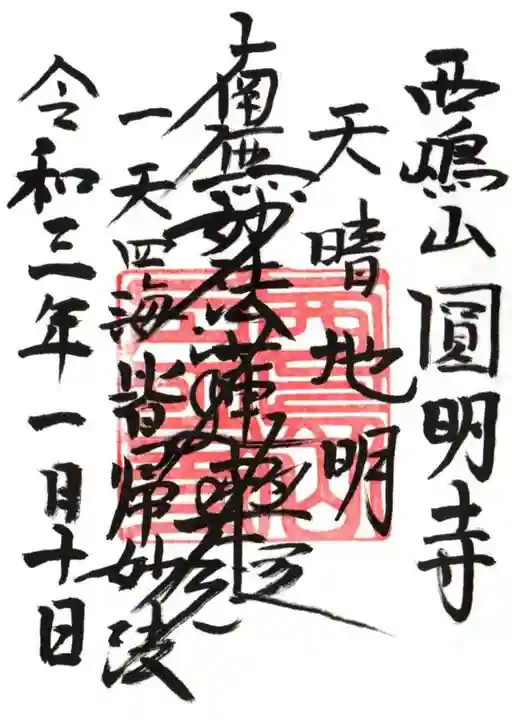 西嶋山圓明寺
天晴地明
南無妙法蓮華経
一天四海皆帰妙法
令和三年一月十日